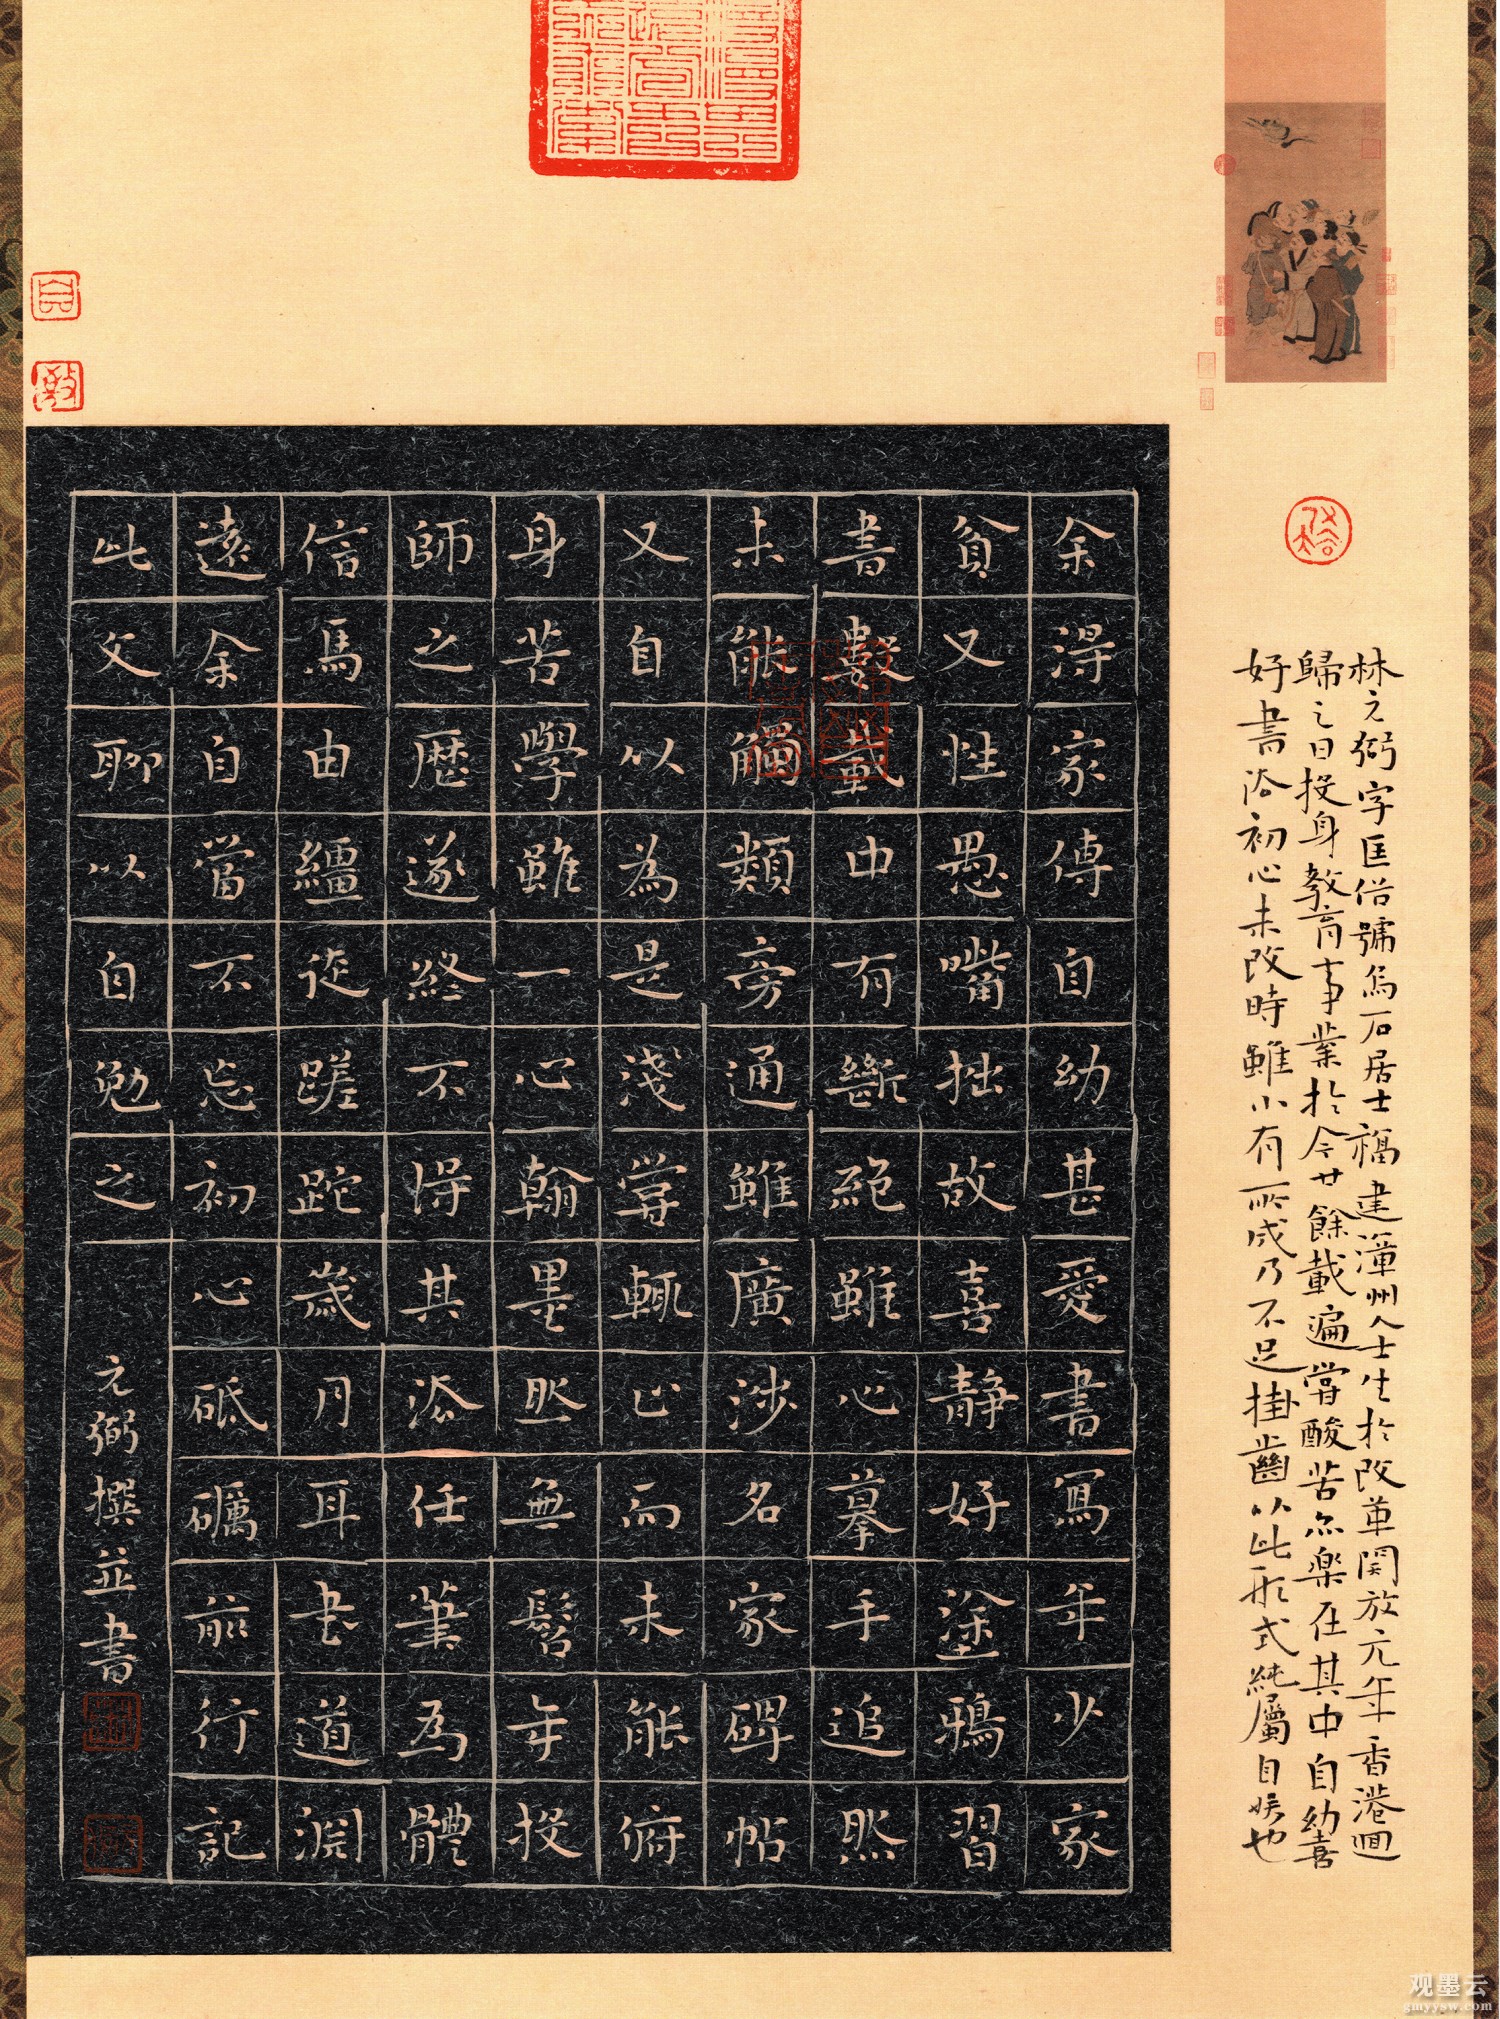 林元弼字匡號烏石居士福建漳州人士生於改革開放元年香港迴
歸之日投身教育事業於今廿餘載遍嘗酸苦亦樂在其中自幼喜
好書法初心未改時雖小有所成乃不足掛齒以此形式純屬自娛也
余得家傳自幼甚愛書寫年少家
貧又性愚嘴拙故喜靜好塗鴉習
書數載中有斷絕雖心摹手追然
未能觸類旁通雖廣涉名家碑帖
又自以為是淺嘗輒止而未能俯
身苦學雖一心翰墨然無髫年投
師之歷遂終不得其法任筆為體
信馬由繮從蹉跎歲月耳書道淵
遠余自當不忘初心砥礪前行記
此文聊以自勉之
元弼撰並書
观墨云
gmyysw.com